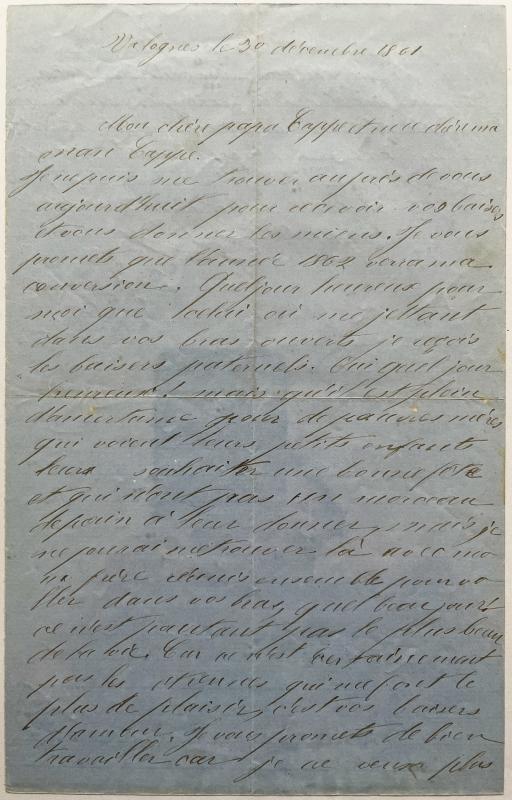 Valognes le 30 décembre 1861
Mon chère papa Cappe et ma chère ma
man Cappe.
Je ne puis me trouver auprès de vous
aujourd'huit pour recevoir vos baisers
et vous donner les miens. Je vous
promets que l'année 1862 verra ma
conversion. Quel jour heureux pour
moi que celui où me jettant
dans vos bras ouverts je reçois
les baisers paternels. Oui quel jour
heureux! mais qu'il est plein
d'amertume pour de pauvres mères
qui voient leurs petits enfants
leurs souhaiter une bonne fête
et qui n'ont pas un morceau
de pain à leur donner, mais je
ne pourai me trouver là avec mo
n frère réunis ensemble pour vo
ller dans vos bras, quel beau jour!
ce n'est pourtant pas le plus beau
de la vie. Car ce n'est certainement
pas les étrennes qui me font le
plus de plaisir, c'est vos baisers
d'amour. Je vous promets de bien
travailler car je ne veux plus